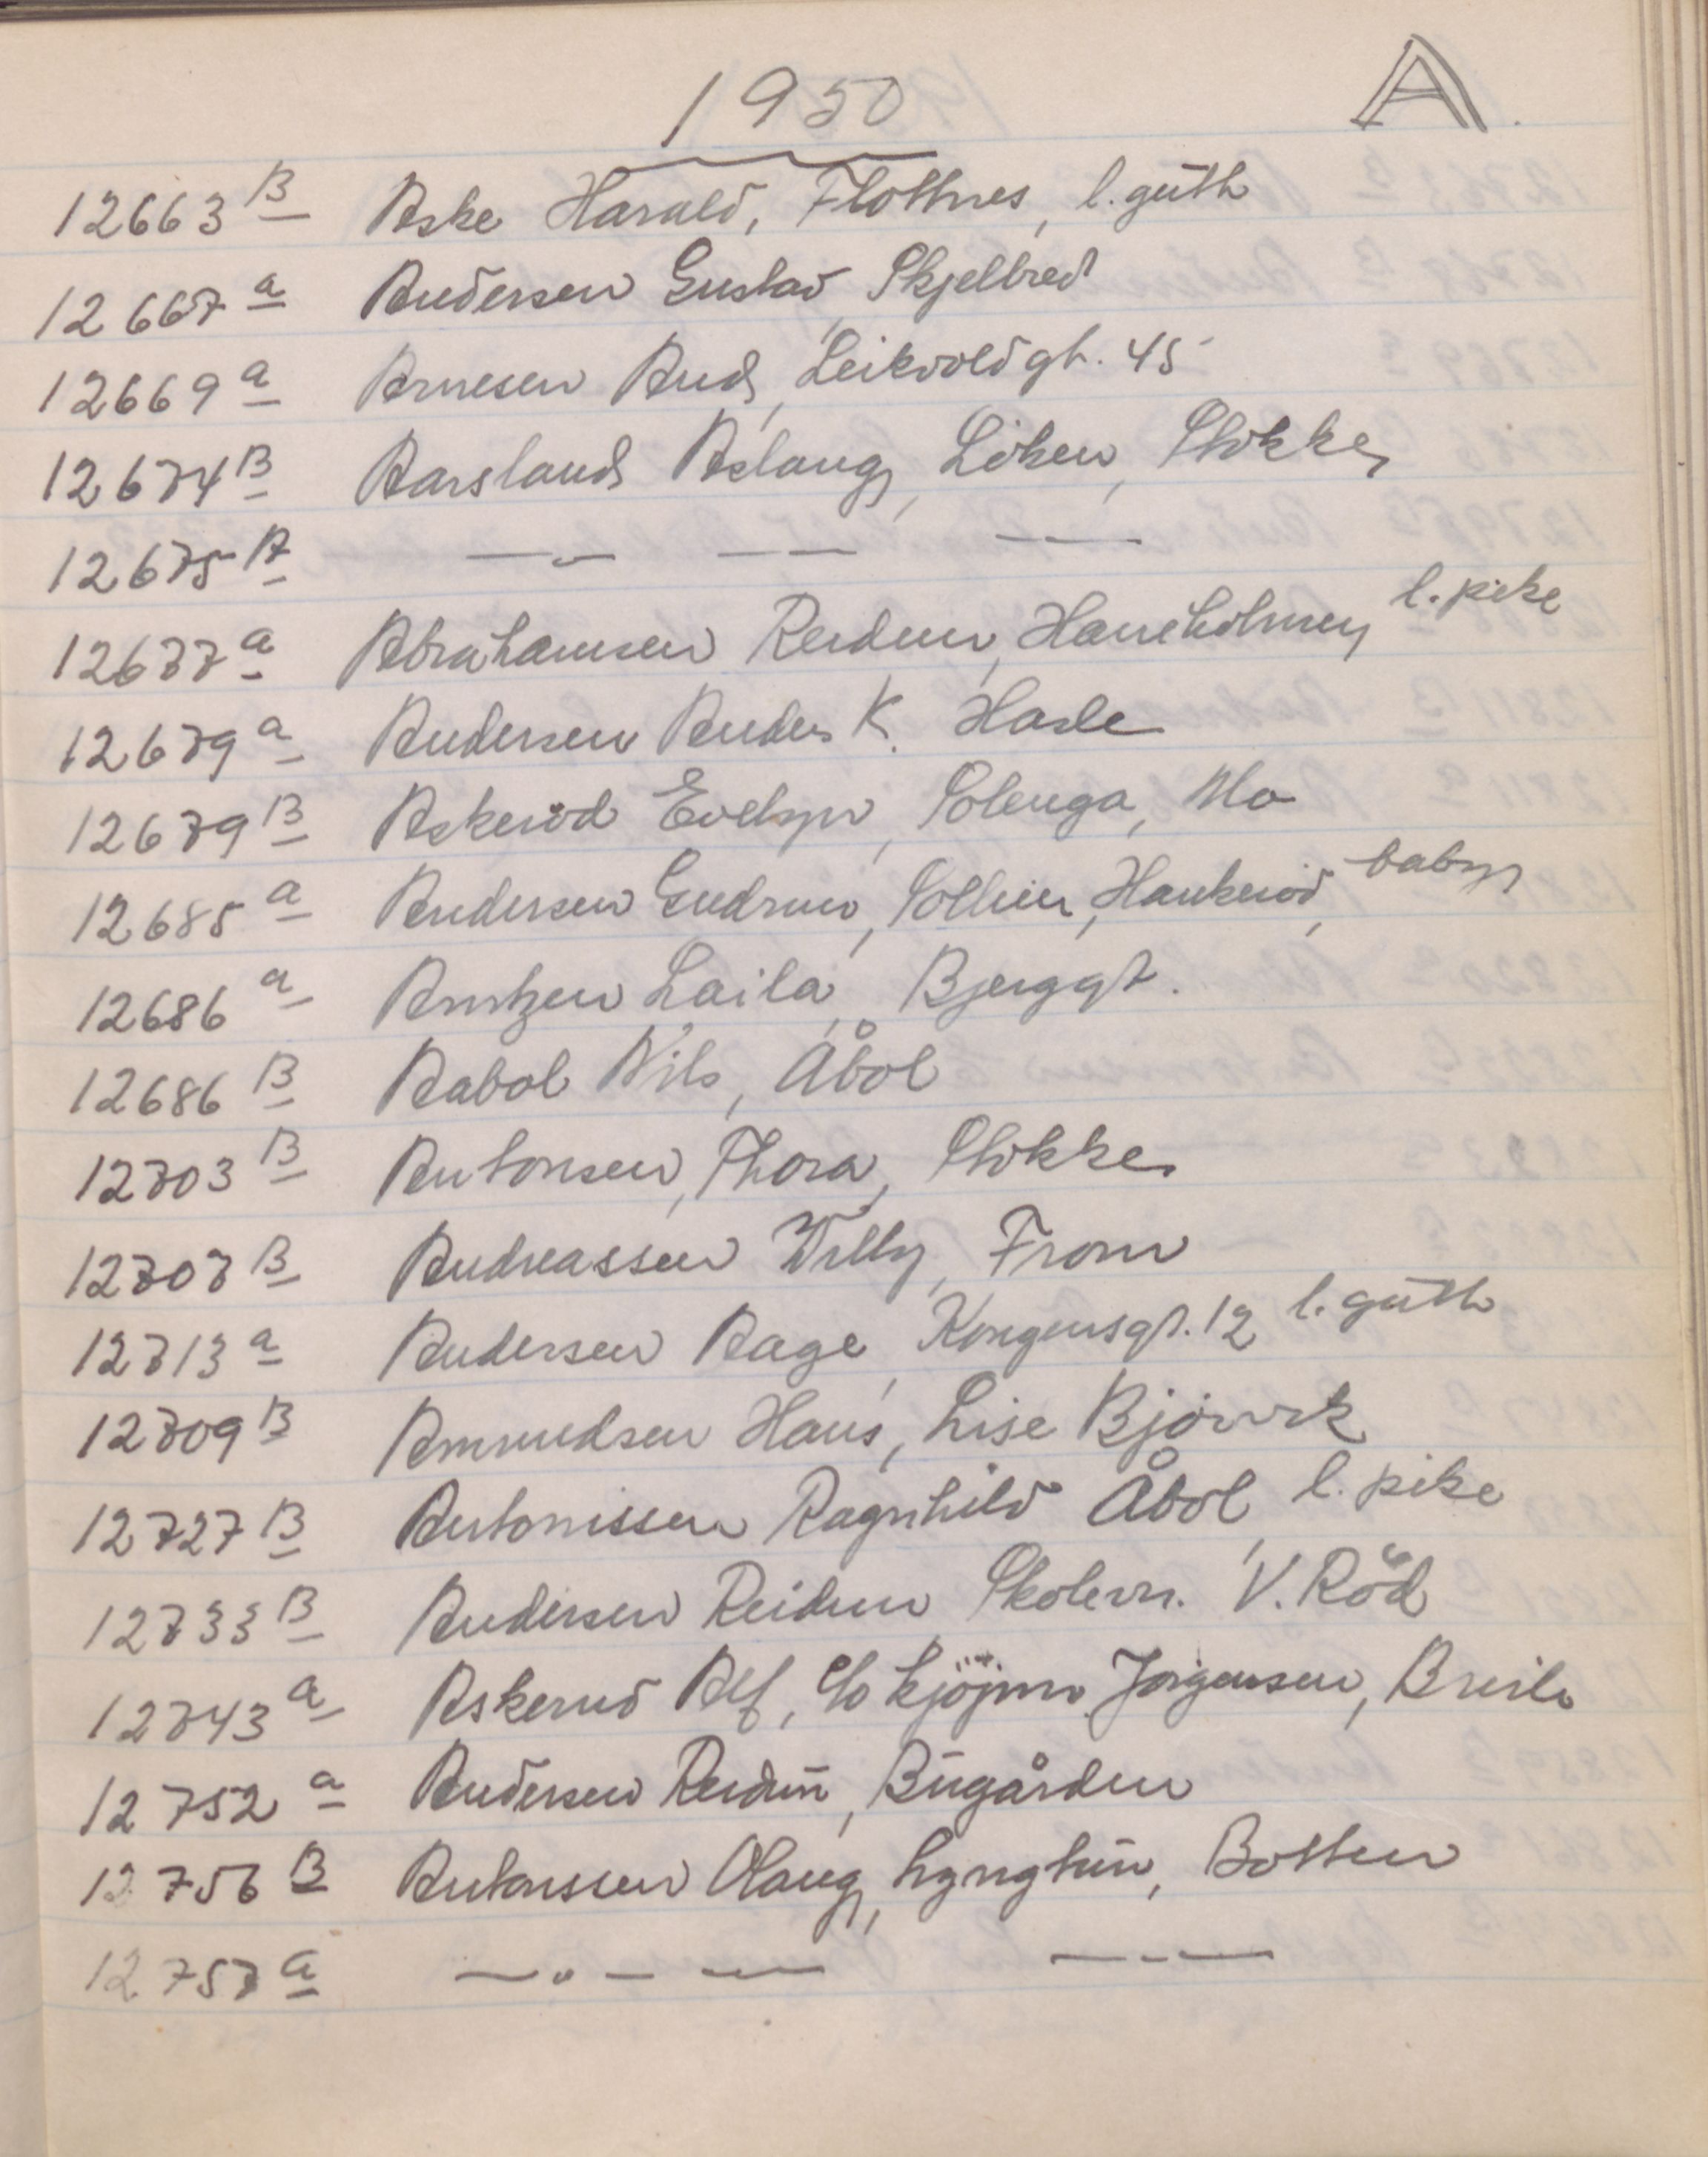 1950 A.
12663 B Aske Harald, Flottnes, l. gutt
12667 a Andersen Gustav, Skjelbred
12669 a Arnesen Arud, Leikvoldgt. 45
12674 B Aarsland Aslaug, Löken, Stokke,
12675 A —„— — — — —
12677 a Abrahamsen Reidun, Haneholmen, l. pike
12679 a Andersen Anders K. Hasle
12679 B Askeröd Evelyn, Solenga, Mo
12685 a Andersen Gudrun, Solheim, Haukeröd, baby
12686 a Arntzen Laila, Bjerggt.
12686 B Aabol Nils, Åbol
12703 B Antonsen, Thora, Stokke.
12707 B Andreassen Willy, From
12713 a Andersen Aage, Kongensgt. 12 l. gutt
12709 B Amundsen Hans, Lise Bjørvik
12727 B Antonissen Ragnhild Åbol, l. pike
12733 B Andersen Reidun Skolevn. V. Röd
12743 a Askerud Alf, c/o Kjöpm. Jörgensen, Breili
12752 a Andersen Reidun, Bugården
12756 B Antonssen Olaug, Lyngtun, Botten
12757 a —„— — — — —